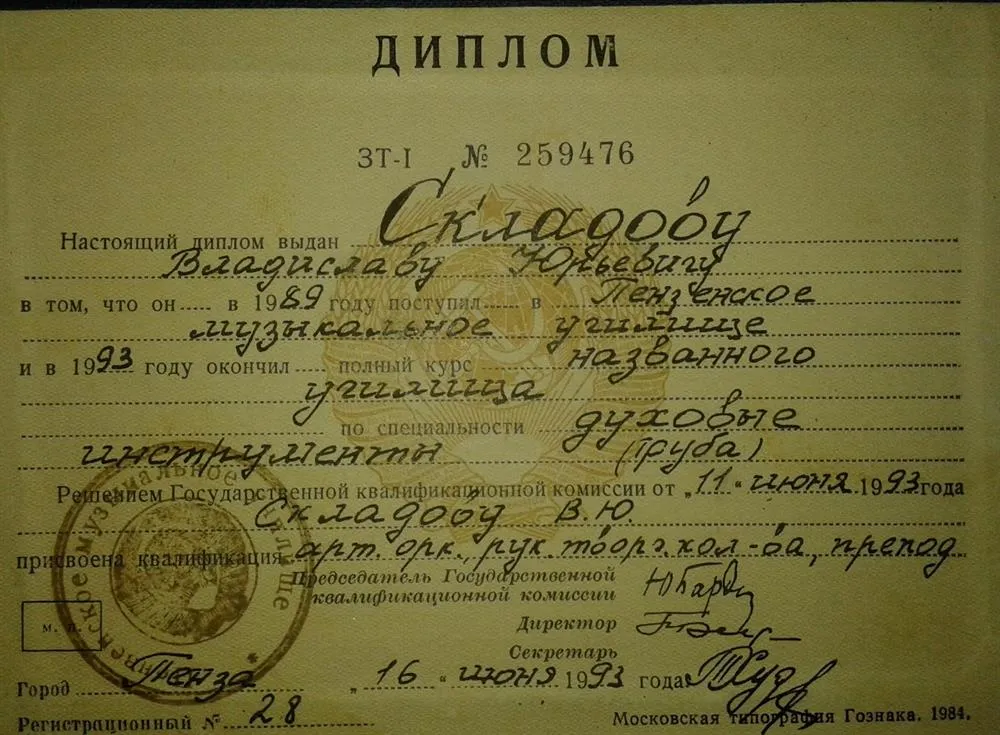 ДИПЛОМ
ЗТ-I № 259476
Настоящий диплом выдан Складову
Владиславу Юрьевичу
в том, что он в 1989 году поступил в Пензенское
музыкальное училище
и в 1993 году окончил полный курс названного
училища
по специальности духовые
инструменты (труба)
Решением Государственной квалификационной комиссии от „11“ июня 1993 года
Складову В.Ю.
присвоена квалификация арт. орк., рук. творч. кол-ва, препод
Председатель Государственной
квалификационной комиссии
Директор
м. п.
Секретарь
Город Пенза „16“ июня 1993 года
Регистрационный № 28
Московская типография Гознака. 1984.
музыкальное училище